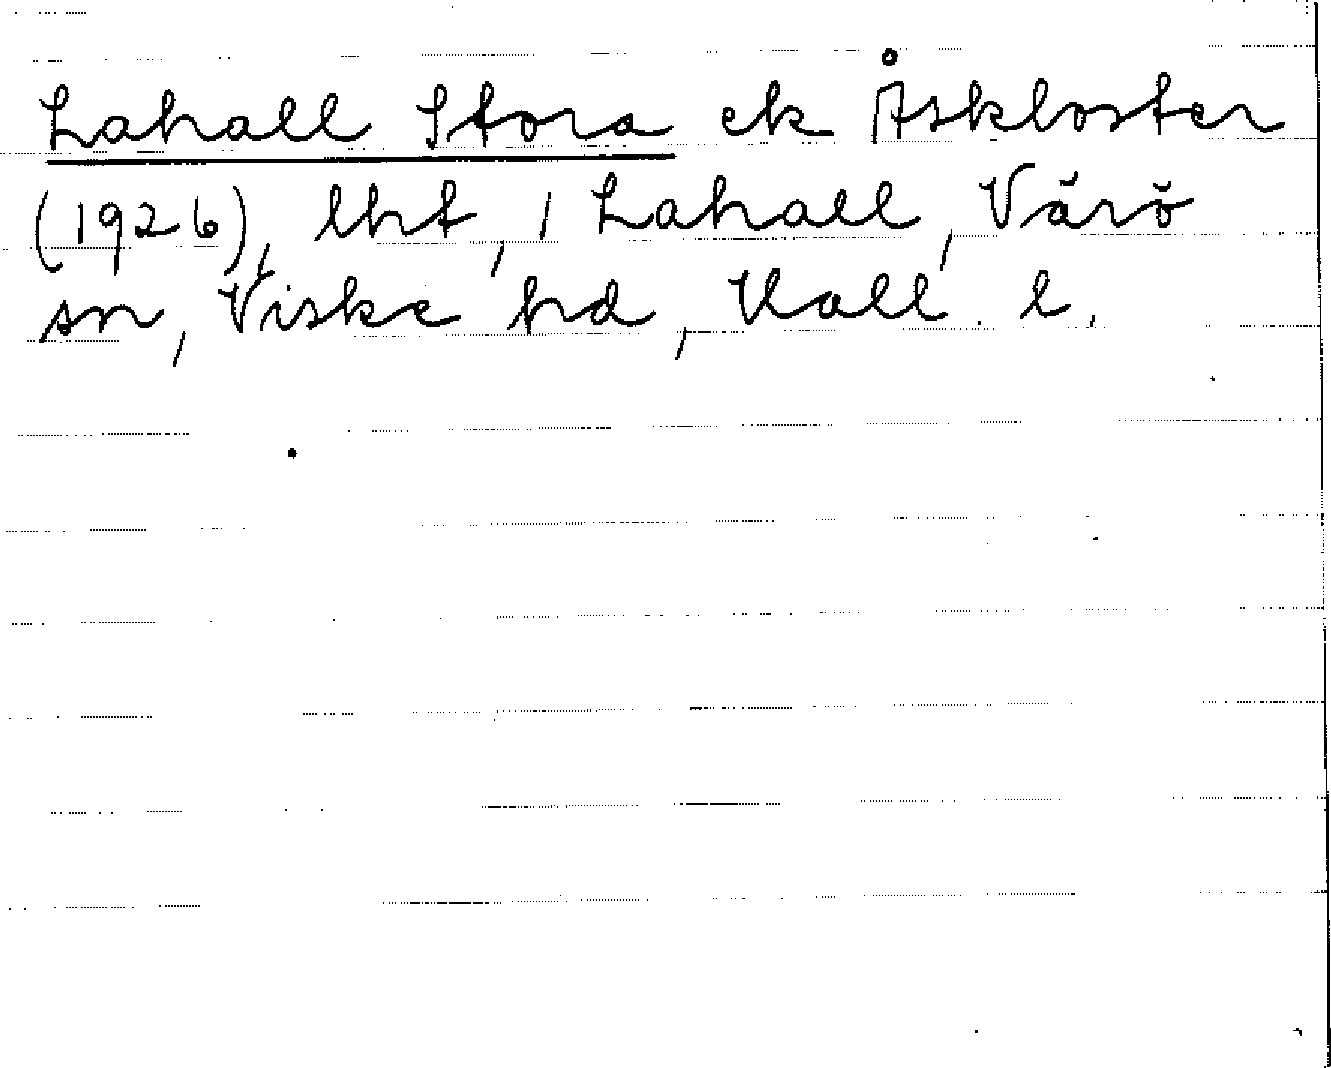 Lahall Stora ek Åskloster
(1926), lht, 1 Lahall, Värö
sn, Viske hd, Hall. l.